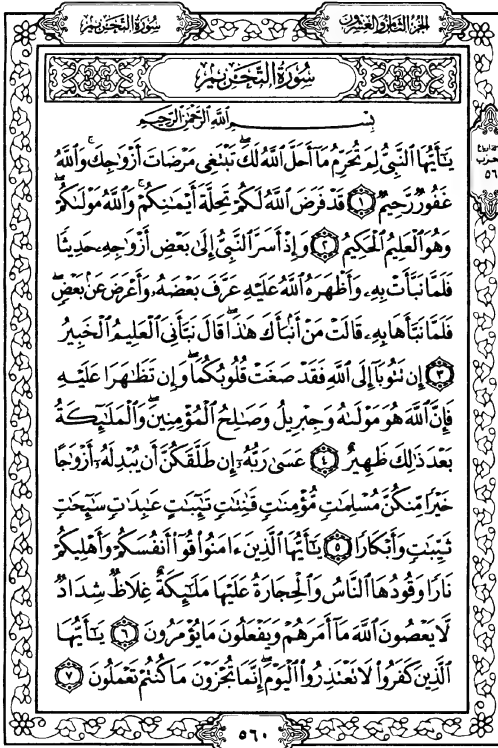 سورة التحريم
الجزء الثامن والعشرون
سُورَةُ التَّحْرِيمِ
بِسْمِ اللَّهِ الرَّحْمَٰنِ الرَّحِيمِ
يَٰٓأَيُّهَا ٱلنَّبِيُّ لِمَ تُحَرِّمُ مَآ أَحَلَّ ٱللَّهُ لَكَۖ تَبْتَغِى مَرْضَاتَ أَزْوَٰجِكَۚ وَٱللَّهُ
غَفُورٌ رَّحِيمٌ ١ قَدْ فَرَضَ ٱللَّهُ لَكُمْ تَحِلَّةَ أَيْمَٰنِكُمْۚ وَٱللَّهُ مَوْلَىٰكُمْۖ
وَهُوَ ٱلْعَلِيمُ ٱلْحَكِيمُ ٢ وَإِذْ أَسَرَّ ٱلنَّبِيُّ إِلَىٰ بَعْضِ أَزْوَٰجِهِۦ حَدِيثًا
فَلَمَّا نَبَّأَتْ بِهِۦ وَأَظْهَرَهُ ٱللَّهُ عَلَيْهِ عَرَّفَ بَعْضَهُۥ وَأَعْرَضَ عَنۢ بَعْضٍۖ
فَلَمَّا نَبَّأَهَا بِهِۦ قَالَتْ مَنْ أَنۢبَأَكَ هَٰذَاۖ قَالَ نَبَّأَنِىَ ٱلْعَلِيمُ ٱلْخَبِيرُ
٣ إِن تَتُوبَآ إِلَى ٱللَّهِ فَقَدْ صَغَتْ قُلُوبُكُمَاۖ وَإِن تَظَٰهَرَا عَلَيْهِ
فَإِنَّ ٱللَّهَ هُوَ مَوْلَىٰهُ وَجِبْرِيلُ وَصَٰلِحُ ٱلْمُؤْمِنِينَۖ وَٱلْمَلَٰٓئِكَةُ
بَعْدَ ذَٰلِكَ ظَهِيرٌ ٤ عَسَىٰ رَبُّهُۥٓ إِن طَلَّقَكُنَّ أَن يُبْدِلَهُۥٓ أَزْوَٰجًا
خَيْرًا مِّنكُنَّ مُسْلِمَٰتٍ مُّؤْمِنَٰتٍ قَٰنِتَٰتٍ تَٰٓئِبَٰتٍ عَٰبِدَٰتٍ سَٰٓئِحَٰتٍ
ثَيِّبَٰتٍ وَأَبْكَارًا ٥ يَٰٓأَيُّهَا ٱلَّذِينَ ءَامَنُوا۟ قُوٓا۟ أَنفُسَكُمْ وَأَهْلِيكُمْ
نَارًا وَقُودُهَا ٱلنَّاسُ وَٱلْحِجَارَةُ عَلَيْهَا مَلَٰٓئِكَةٌ غِلَاظٌ شِدَادٌ
لَّا يَعْصُونَ ٱللَّهَ مَآ أَمَرَهُمْ وَيَفْعَلُونَ مَا يُؤْمَرُونَ ٦ يَٰٓأَيُّهَا
ٱلَّذِينَ كَفَرُوا۟ لَا تَعْتَذِرُوا۟ ٱلْيَوْمَۖ إِنَّمَا تُجْزَوْنَ مَا كُنتُمْ تَعْمَلُونَ ٧
٥٦٠